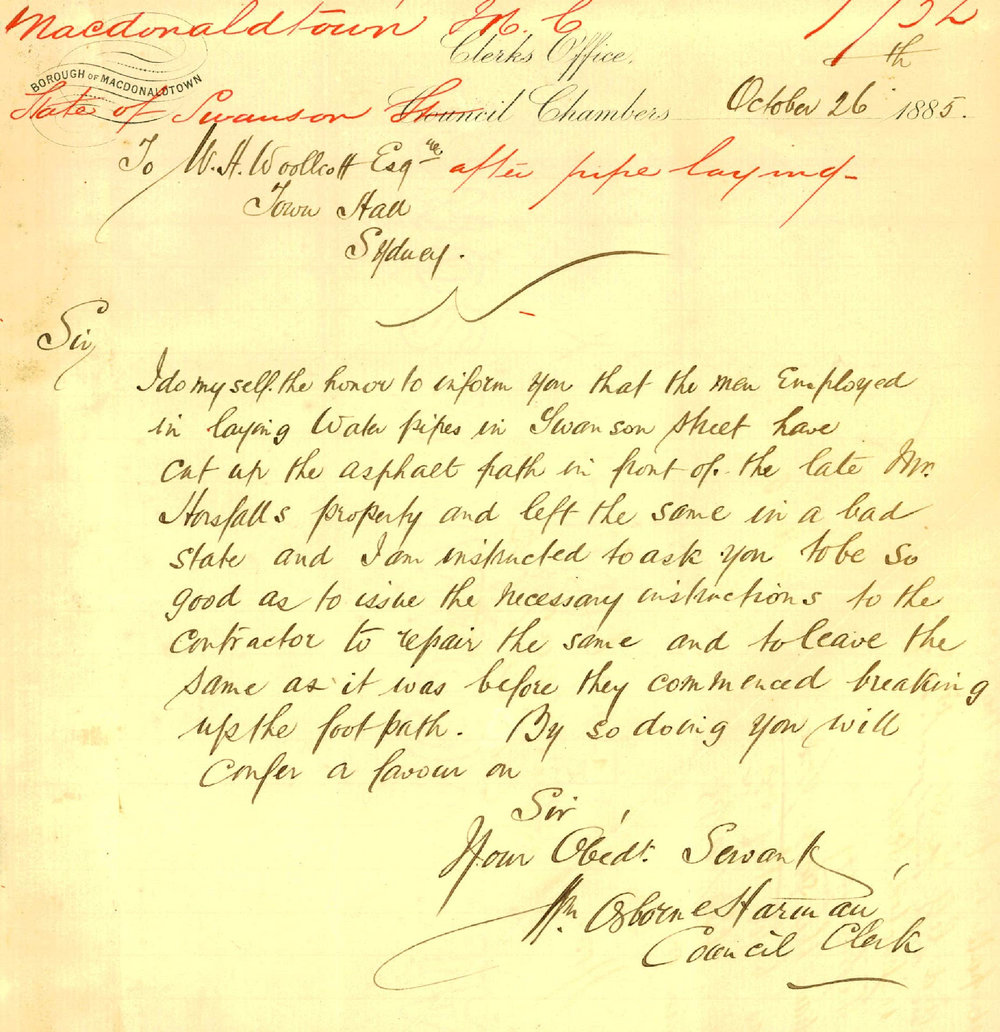 Macdonaldtown M. C
Clerks Office,
th
BOROUGH OF MACDONALDTOWN
State of Swanson St
Council Chambers October 26 1885.
To W. H. Woollcott Esqre after pipe laying-
Town Hall
Sydney.
Sir
I do myself the honor to inform you that the men Employed
in laying Water pipes in Swanson Street have
cut up the asphalt path in front of the late Mr.
Horsfalls property and left the same in a bad
state and I am instructed to ask you to be so
good as to issue the necessary instructions to the
contractor to repair the same and to leave the
same as it was before they commenced breaking
up the foot path. By so doing you will
confer a favour on
Sir,
Your Obedt. Servant,
Wm Osborne Harman
Council Clerk